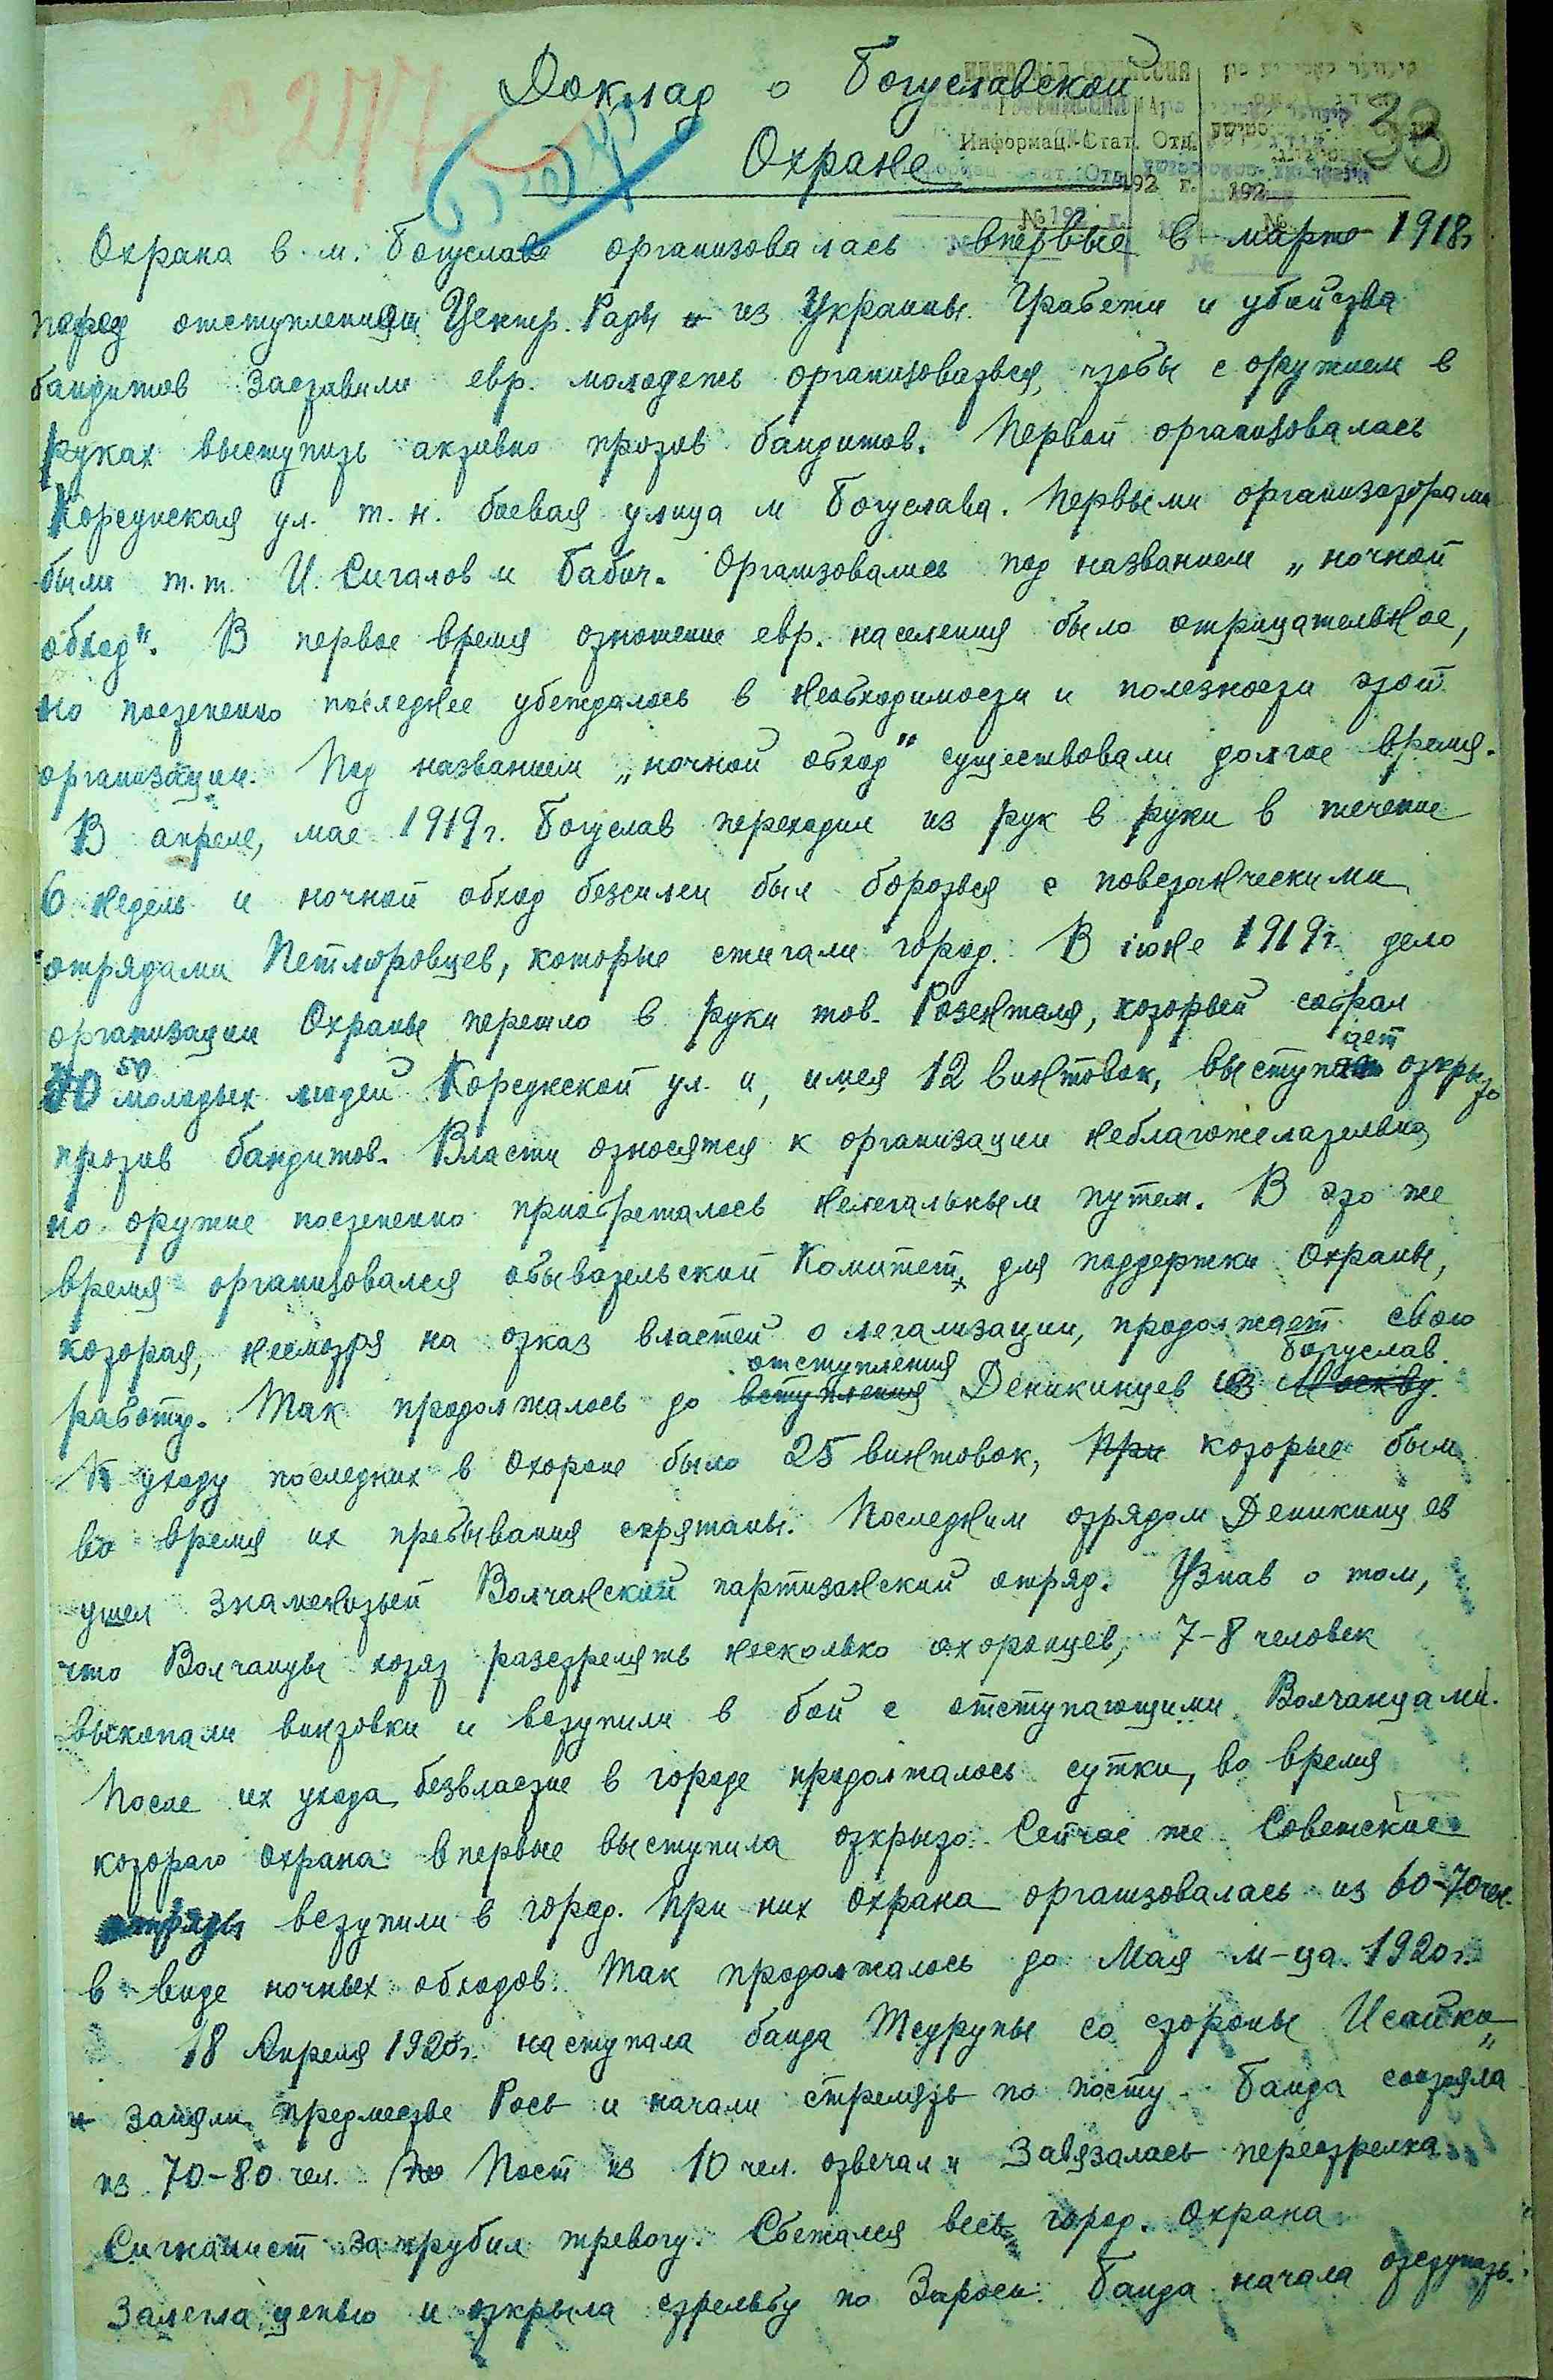 Доклад о Богуславской
Охране
33
Информац.-Стат. Отд.
192 г.
192
№
Охрана в м. Богуславе организовалась впервые в марте 1918г
перед отступлением Центр. Рады из Украины. Грабежи и убийства
бандитов заставили евр. молодежь организоваться, чтобы с оружием в
руках выступить активно против бандитов. Первой организовалась
Корсунская ул. т. н. боевая улица м Богуслава. Первыми организаторами
были т.т. И. Сигалов и Бабич. Организовались под названием „ночной
обход". В первое время отношение евр. населения было отрицательное,
но постепенно последнее убеждалось в необходимости и полезности этой
организации. Под названием „ночной обход" существовали долгое время.
В апреле, мае 1919г. Богуслав переходил из рук в руки в течение
6 недель и ночной обход безсилен был бороться с повстанческими
отрядами Петлюровцев, которые сжигали город. В июне 1919г. дело
организации Охраны перешло в руки тов. Розенталя, который собрал
50 молодых людей Корсунской ул. и, имея 12 винтовок, выступает открыто
против бандитов. Власти относятся к организации неблагожелательно,
но оружие постепенно приобреталось нелегальным путем. В это же
время организовался обывательский Комитет для поддержки Охраны,
которая, несмотря на отказ властей о легализации, продолжает свою
работу. Так продолжалось до вступления отступления Деникинцев из Москву Богуслав.
К уходу последних в охороне было 25 винтовок, При которые были
во время их пребывания спрятаны. Последним отрядом Деникинцев
ушел знаменитый Волчанский партизанский отряд. Узнав о том,
что Волчанцы хотят разстрелять несколько охоронцев, 7-8 человек
выкопали винтовки и вступили в бой с отступающими Волчанцами.
После их ухода безвластие в городе продолжалось сутки, во время
котораго Охрана впервые выступила открыто. Сейчас же Советские
отряды вступили в город. При них охрана организовалась из 60-70 чел.
в виде ночных обходов. Так продолжалось до Мая м-ца 1920г.
18 Апреля 1920г. наступала банда Тсурупы со стороны Исайки
и заняли предместье Рось и начали стрелять по посту. Банда состояла
из 70-80 чел. Но Пост из 10 чел. отвечал и Завязалась перестрелка.
Сигналист затрубил тревогу. Сбежался весь город. Охрана
Залегла цепью и открыла стрельбу по Зароси. Банда начала отступать.